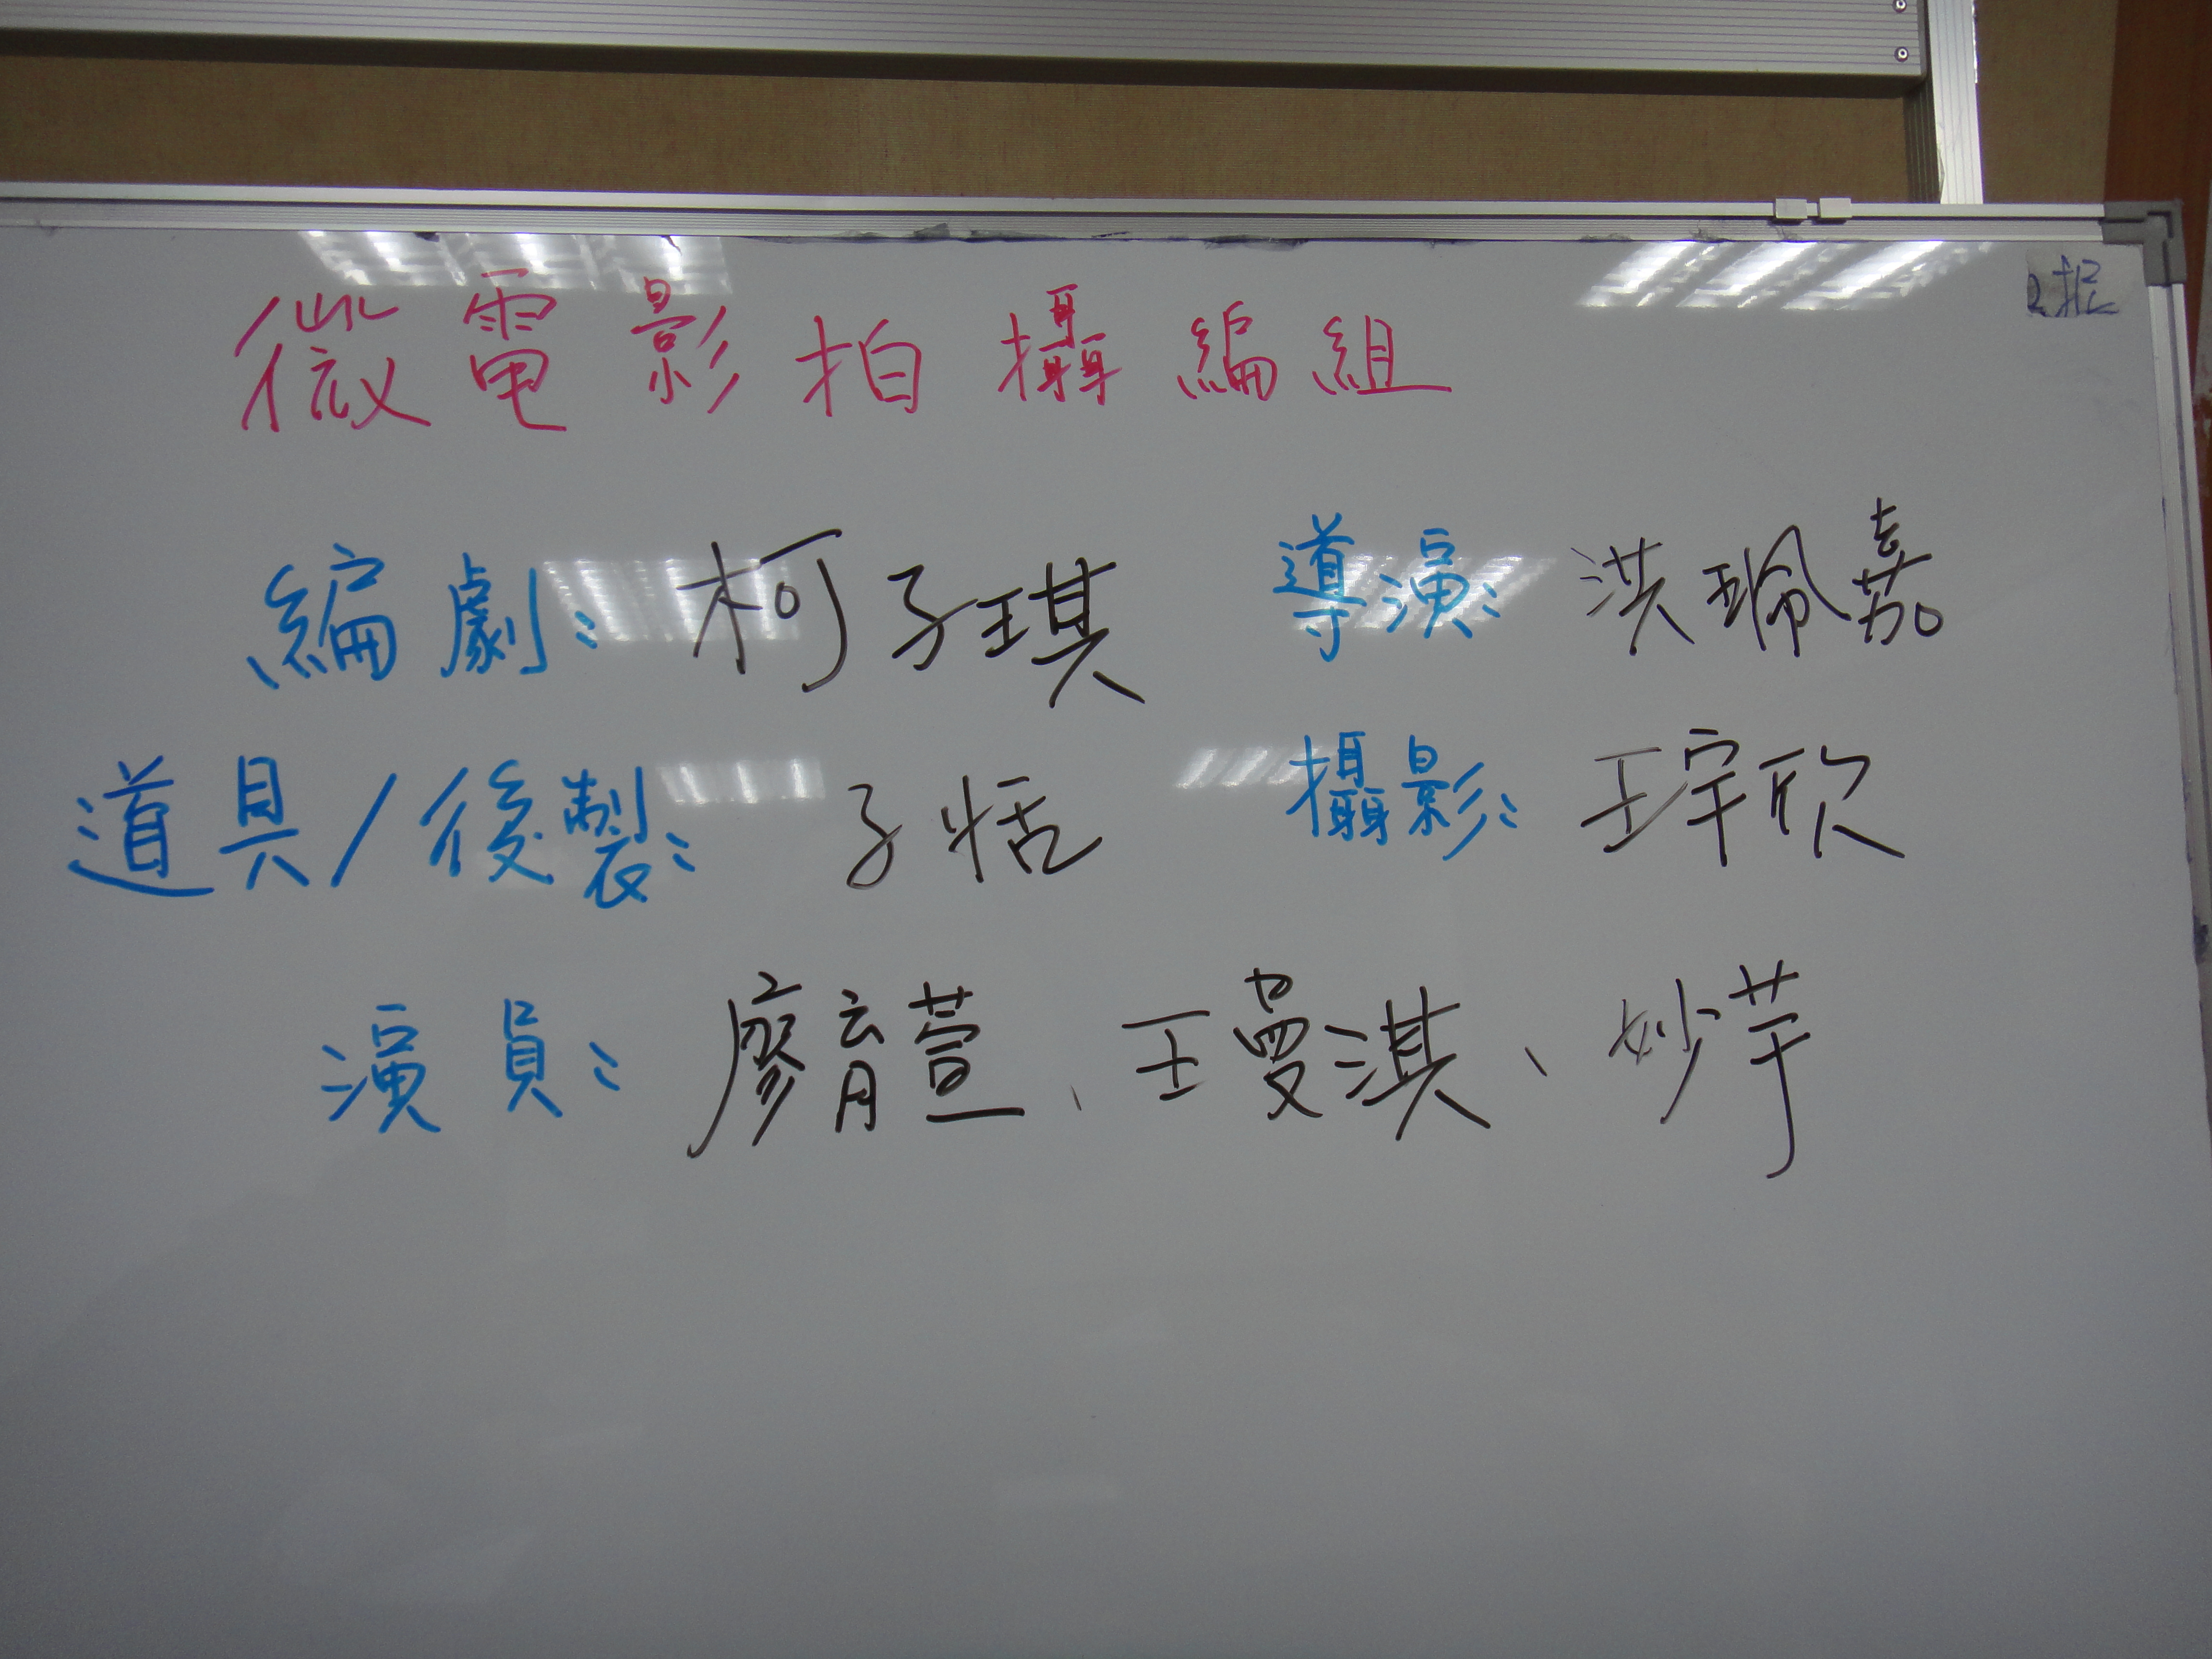 微電影拍攝編組
編劇：柯子琪 導演：洪珮嘉
道具/後製：子恬 攝影：王宇欣
演員：廖育萱、王曼淇、妙芋